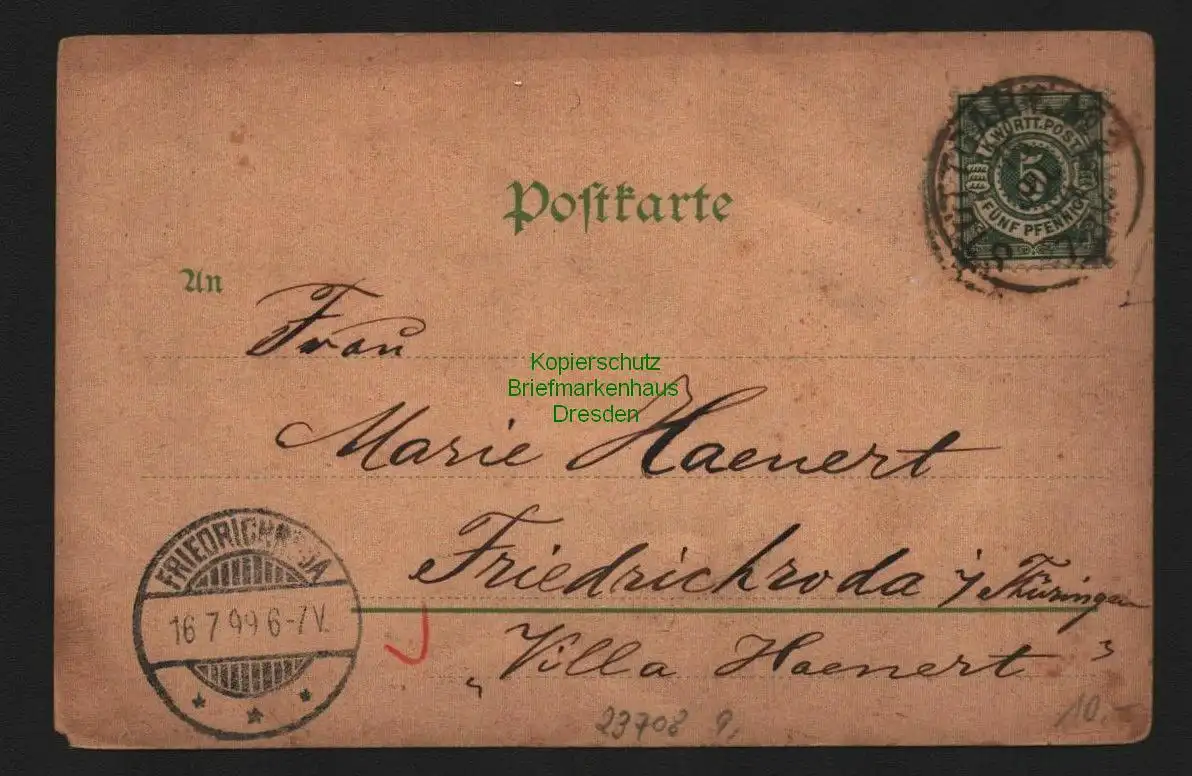 Postkarte
K. WÜRTT. POST
5
FÜNF PFENNIG
An
Frau
Kopierschutz
Briefmarkenhaus
Dresden
Marie Haenert
Friedrichroda i/ Thüringen
„Villa Haenert"
FRIEDRICHRODA
16 7 99 6-7 V.
23708 9,
10.-